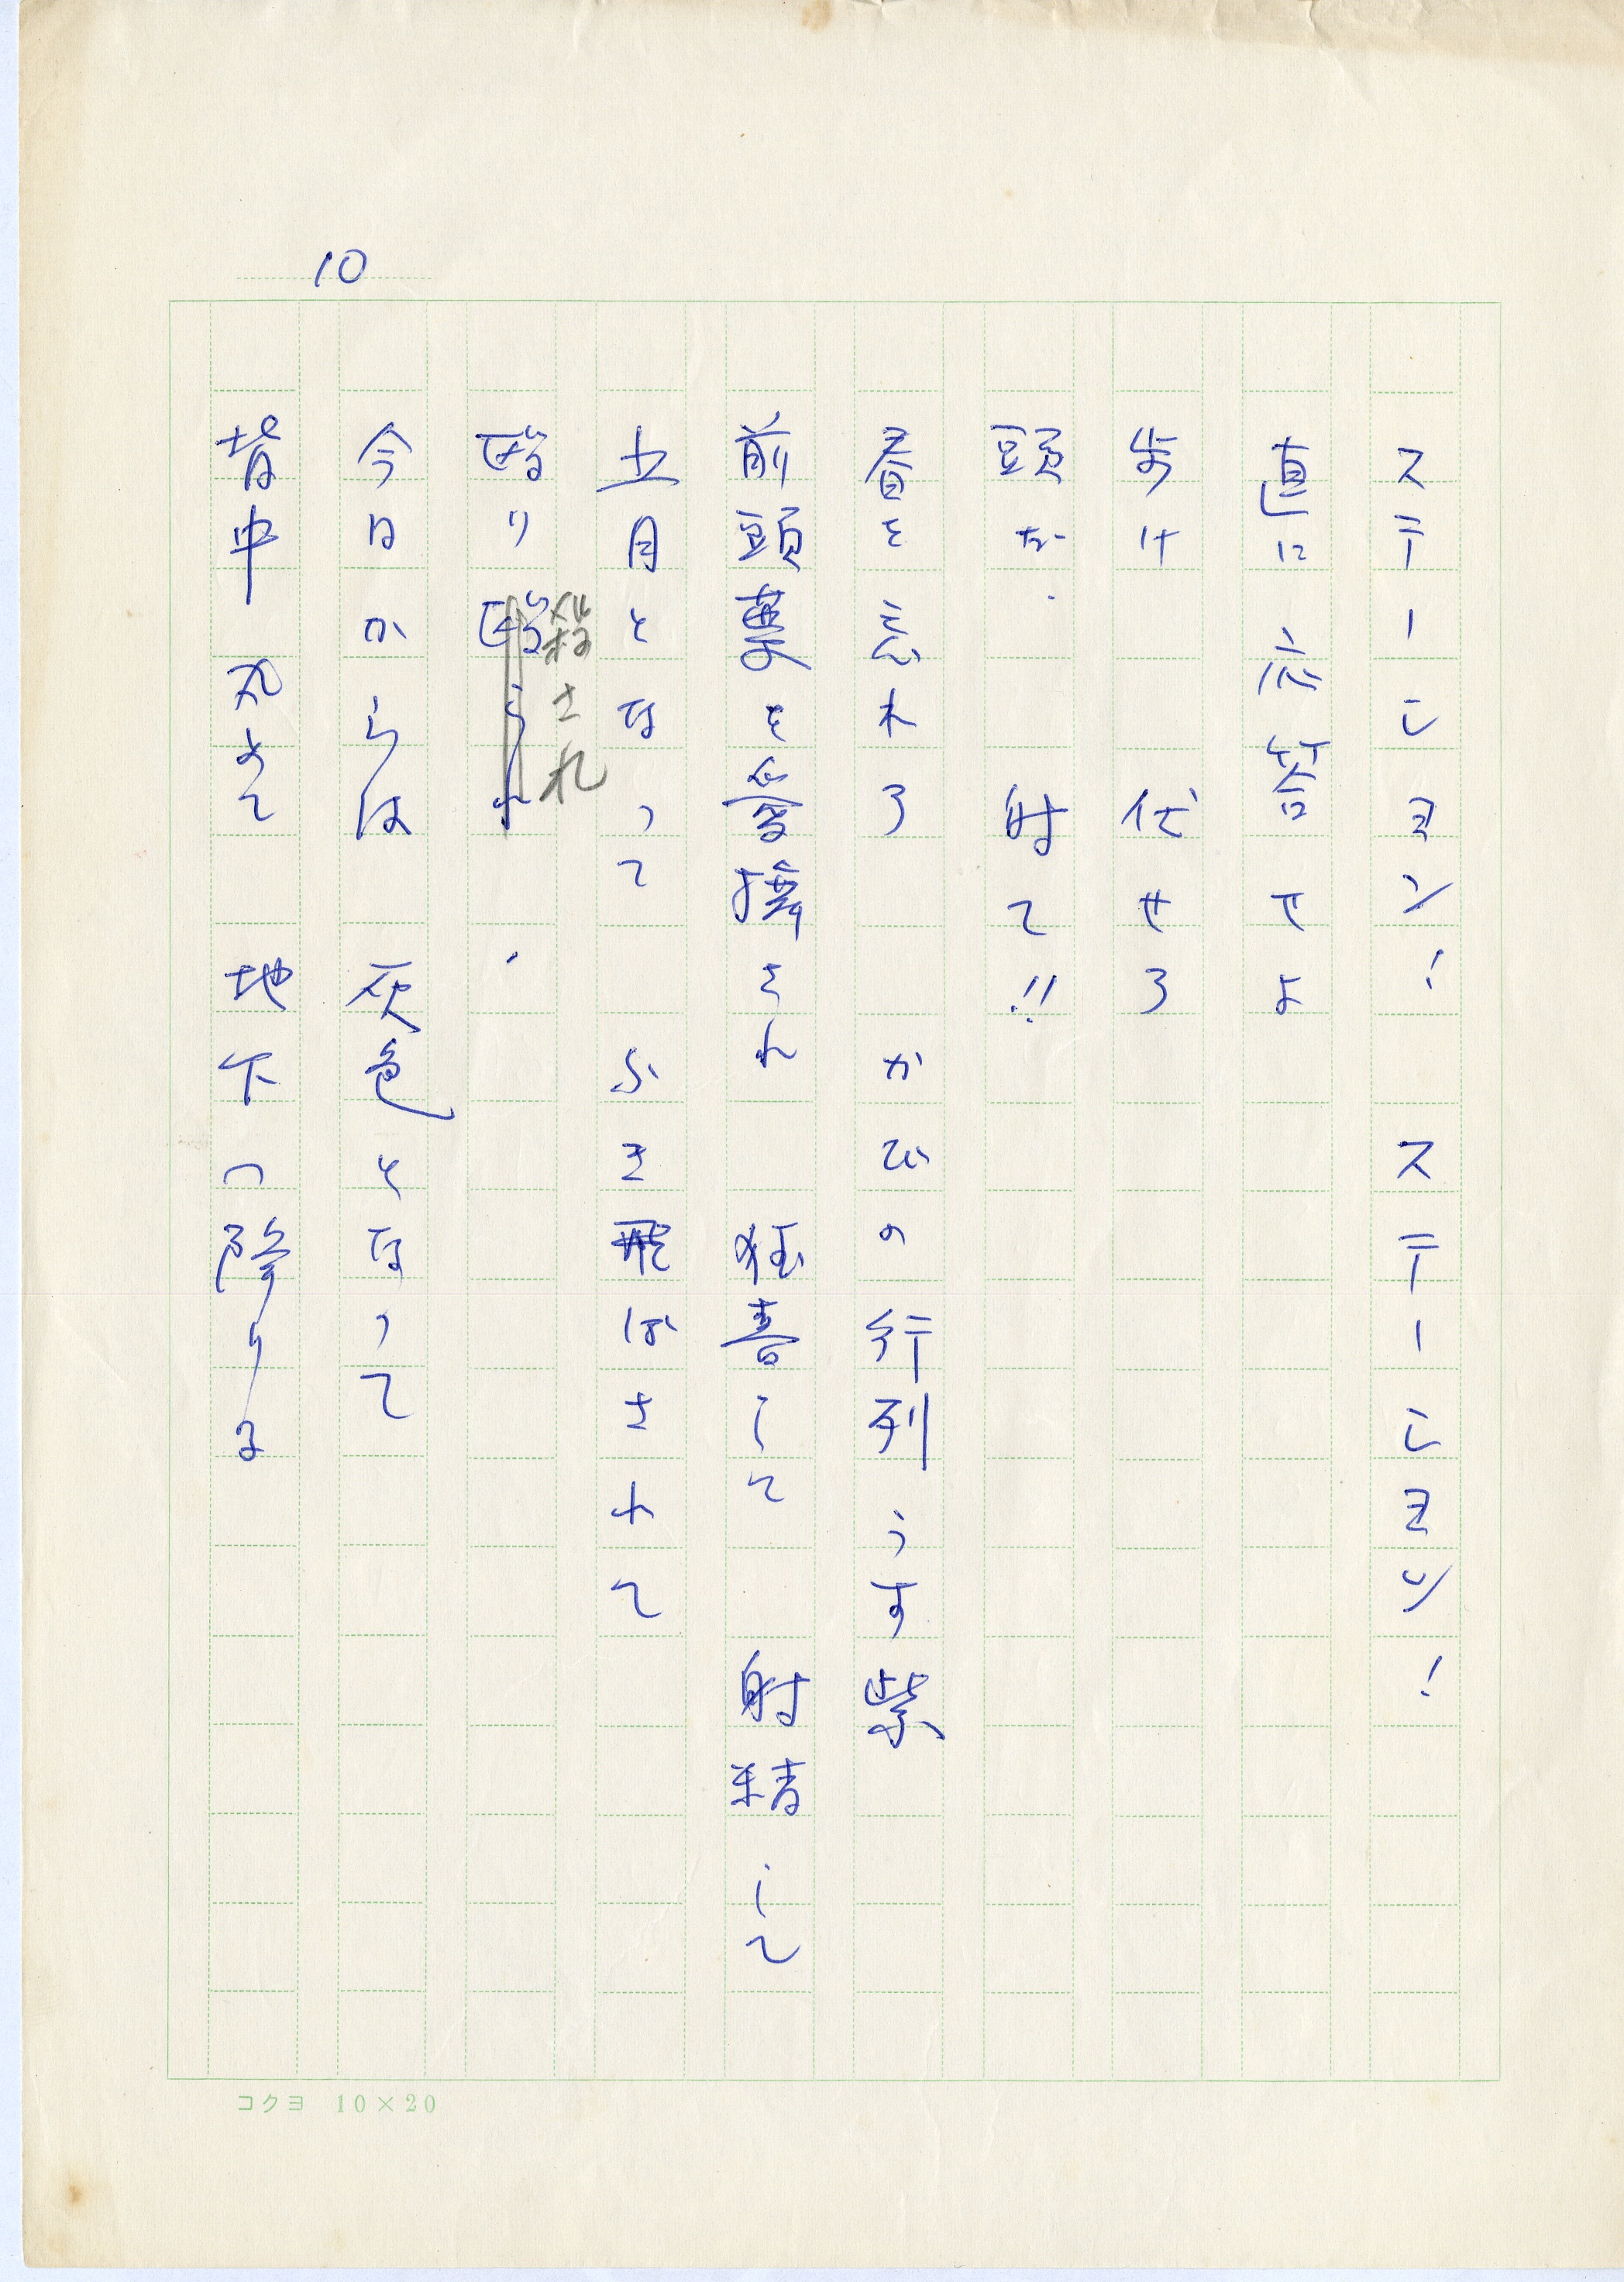 10
ステーション！　ステーション！
直に　応答せよ
歩け　伏せろ
頭だ　射て!!
春を忘れろ　かびの行列　うす紫
前頭葉を愛撫され　狂喜して　射精して
五月となって　ふき飛ばされて
殴り　殴られ、
殺され
今日からは　灰色となって
背中丸めて　地下へ降りる
コクヨ　10×20